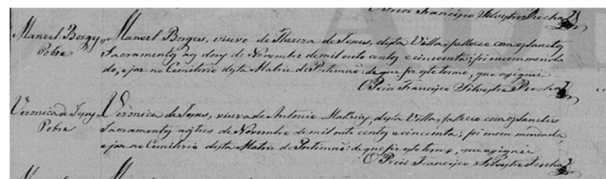 O Prior Francisco Silvestre Rocha
Manoel Borges Manoel Borges, viuvo de Thereza de Jesus, desta Villa, falleceo com os Sanctos
Pobre Sacramentos aos dous de Novembro de mil oito centos e cincoenta: foi encommenda
do, e jaz no Cemiterio desta Matriz de Portimão: de que fiz este termo, que assignei
O Prior Francisco Silvestre Rocha
Veronica de Jesus Veronica de Jesus, viuva de Antonio Mathias, desta Villa, falleceo com os Sanctos
Pobre Sacramentos aos tres de Novembro de mil oito centos e cincoenta: foi encommendada
e jaz no Cemiterio desta Matriz de Portimão: de que fiz este termo, que assignei
O Prior Francisco Silvestre Rocha